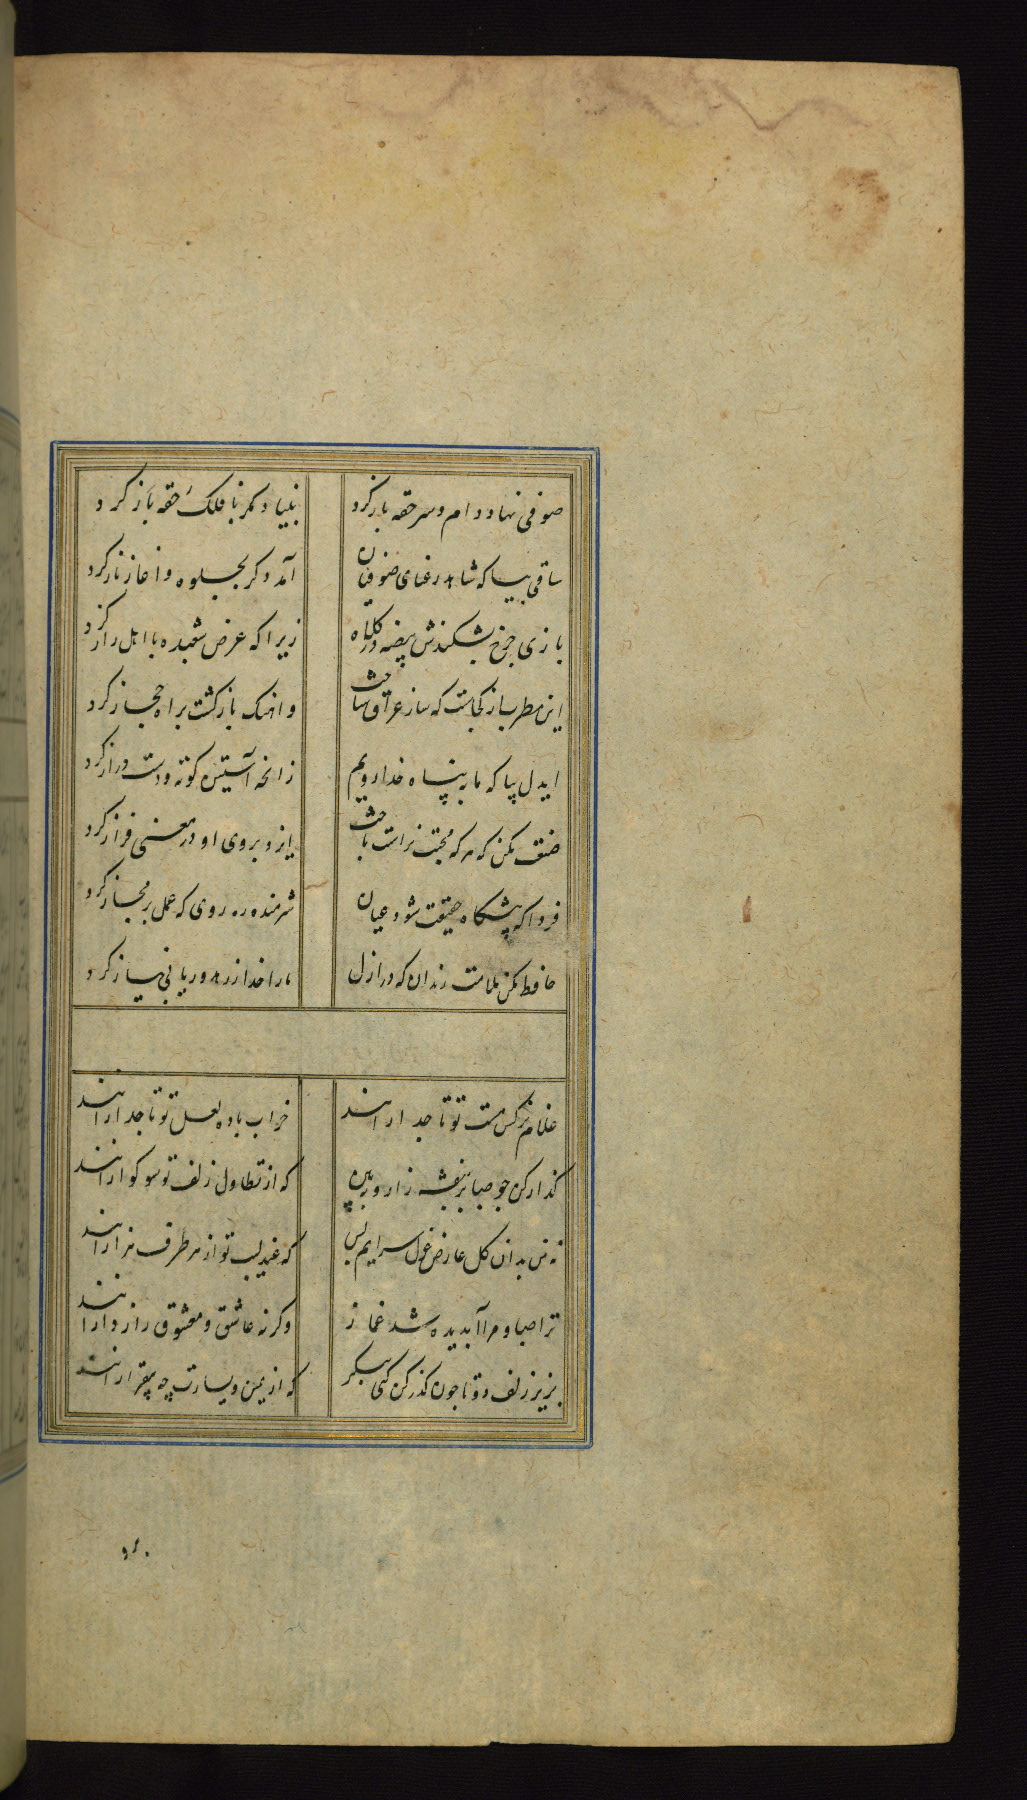 صوفی نهاد دام و سر حقه باز کرد بنیاد مکر با فلک حقه باز کرد
ساقی بیا که شاهد رعنای صوفیان آمد دکر بجلوه و اغاز ناز کرد
بازی چرخ بشکندش بیضه در کلاه زیرا که عرض شعبده با اهل راز کرد
این مطرب از کجاست که ساز عراق ساخت و اهنک بازکشت براه حجاز کرد
ایدل بیا که ما به پناه خدا رویم زانچه آستین کوته و دست دراز کرد
صنعت مکن که هر که محبت نه راست باخت بر روی او در معنی فراز کرد
فردا که پیشکاه حقیقت شود عیان شرمنده ره روی که عمل بر مجاز کرد
حافظ مکن ملامت رندان که در ازل ما را خدا ز زهد و ریا بی نیاز کرد
غلام نرکس مست تو تاجدارانند خراب باده لعل تو تاجدارانند
کذار کن چو صبا بر بنفشه زار و ببین که از تطاول زلف تو سوکوارانند
نه من بدان کل عارض غزل سرایم بس که عندلیب تو از هر طرف هزارانند
ترا صبا و مرا آبدیده شد غماز وکرنه عاشق و معشوق رازدارانند
بزیر زلف دوتا چون کذر کنی بنکر که از یمین و یسارت چه بیقرارانند